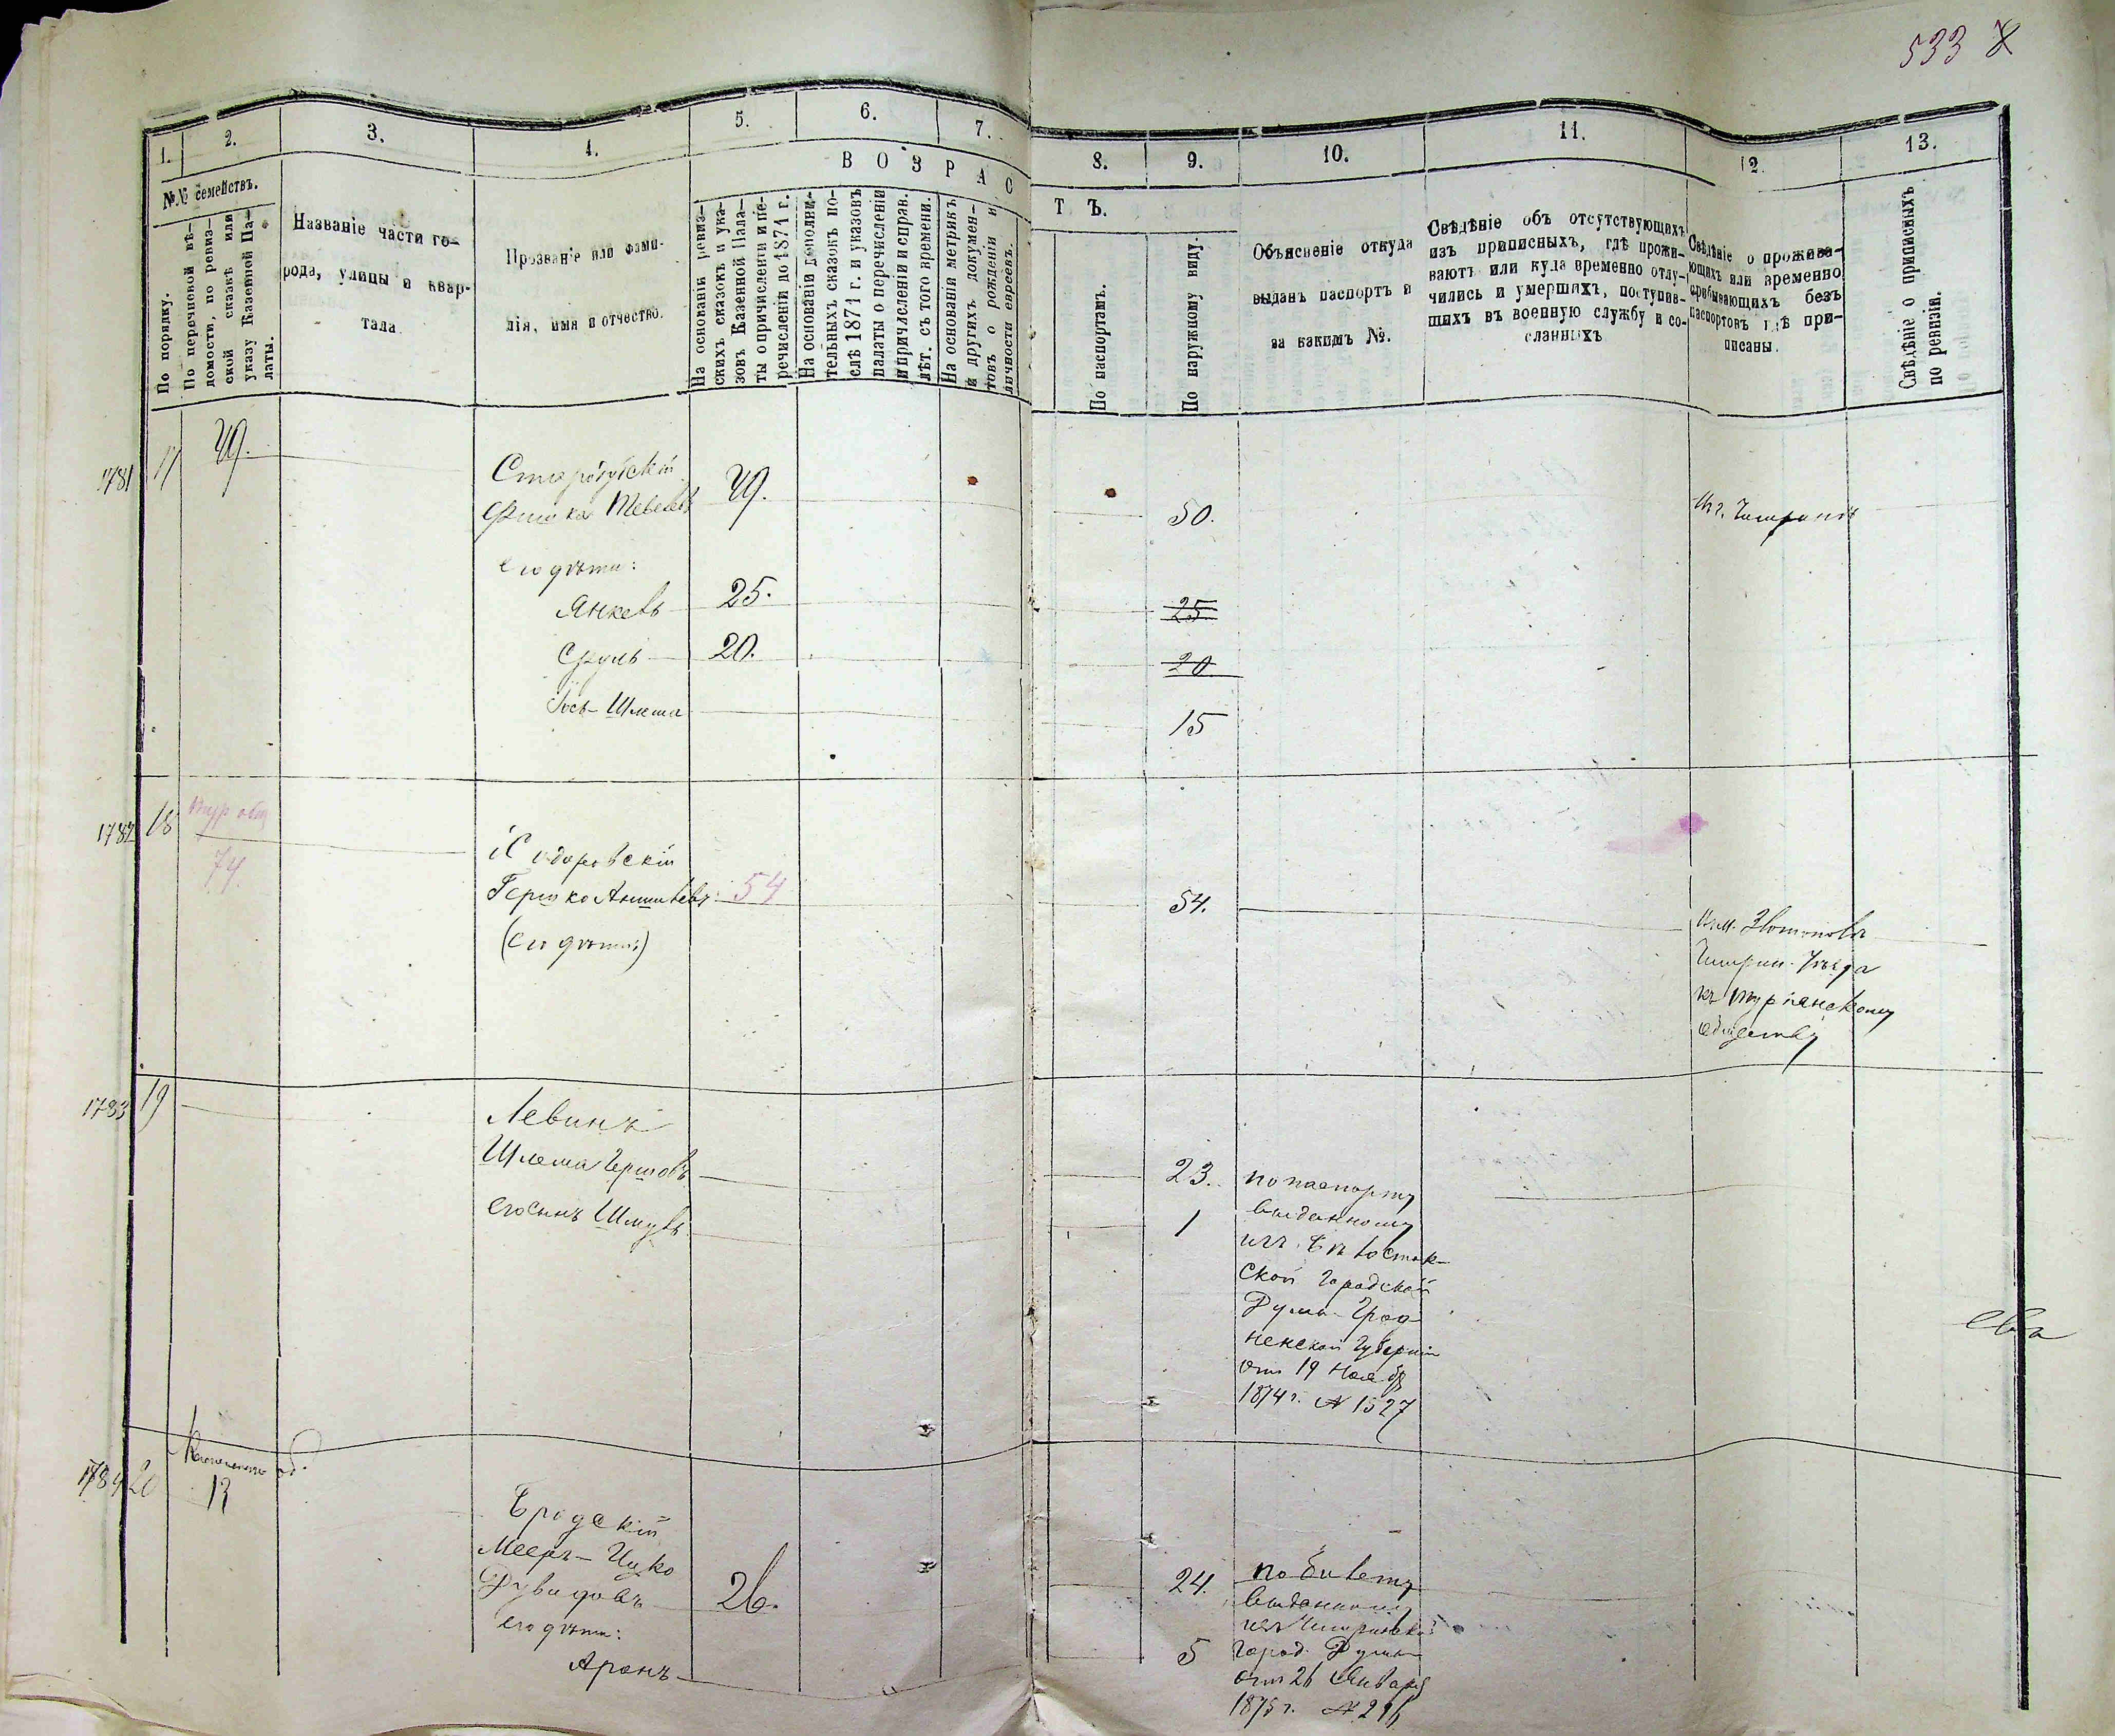 533
1.
2.
3.
4.
5.
6.
7.
8.
9.
10.
11.
12.
13.
№№ семействъ.
По порядку.
По перечневой вѣ-
домости, по ревиз-
ской сказкѣ или
указу Казенной Па-
латы.
Названіе части го-
рода, улицы и квар-
тала.
Прозваніе или фами-
лія, имя и отчество.
ВОЗРАС
ТЪ.
На основаніи ревиз-
скихъ сказокъ и ука-
зовъ Казенной Пала-
ты о причисленіи и пе-
речисленіи до 1871 г.
На основаніи дополни-
тельныхъ сказокъ по-
слѣ 1871 г. и указовъ
палаты о перечисленіи
и причисленіи и справ.
лѣт. съ того времени.
На основаніи метрикъ
и другихъ докумен-
товъ о рожденіи и
личности евреевъ.
По паспортамъ.
По наружному виду.
Объясненіе откуда
выданъ паспортъ и
за какимъ №.
Свѣдѣніе объ отсутствующихъ
изъ приписныхъ, гдѣ прожи-
ваютъ или куда временно отлу-
чились и умершихъ, поступив-
шихъ въ военную службу и со-
сланныхъ
Свѣдѣніе о прожива-
ющихъ или временно
прибывающихъ безъ
паспортовъ гдѣ при-
писаны.
Свѣдѣніе о приписныхъ
по ревизіи.
1781 17
Стародубскій
Фишко Тевелевъ 50.
его дѣти:
Янкевъ 25. 25.
Сруль 20. 20
Іось-Шлема 15
1782 18 74.
Ходоровскій
Гершко Аншелевъ 54 54.
(его дѣти:)
Чигрин. Уѣзда
къ Турянскому
обществу
1783 19
Левинъ
Шлема Гершовъ 23. по паспорту
его сынъ Шмуль 1 выданному
изъ Бѣлосток-
ской Городской
Думы Грод
ненской Губерніи
отъ 19 Ноябр
1874 г. № 1527
1784 20 13
Бродскій
Мееръ-Ицко
Дувидовъ 26. 24. по билету
его дѣти: выданному
изъ Чигринской
Аронъ 5 Город. Думы
отъ 26 Января
1875 г. № 216